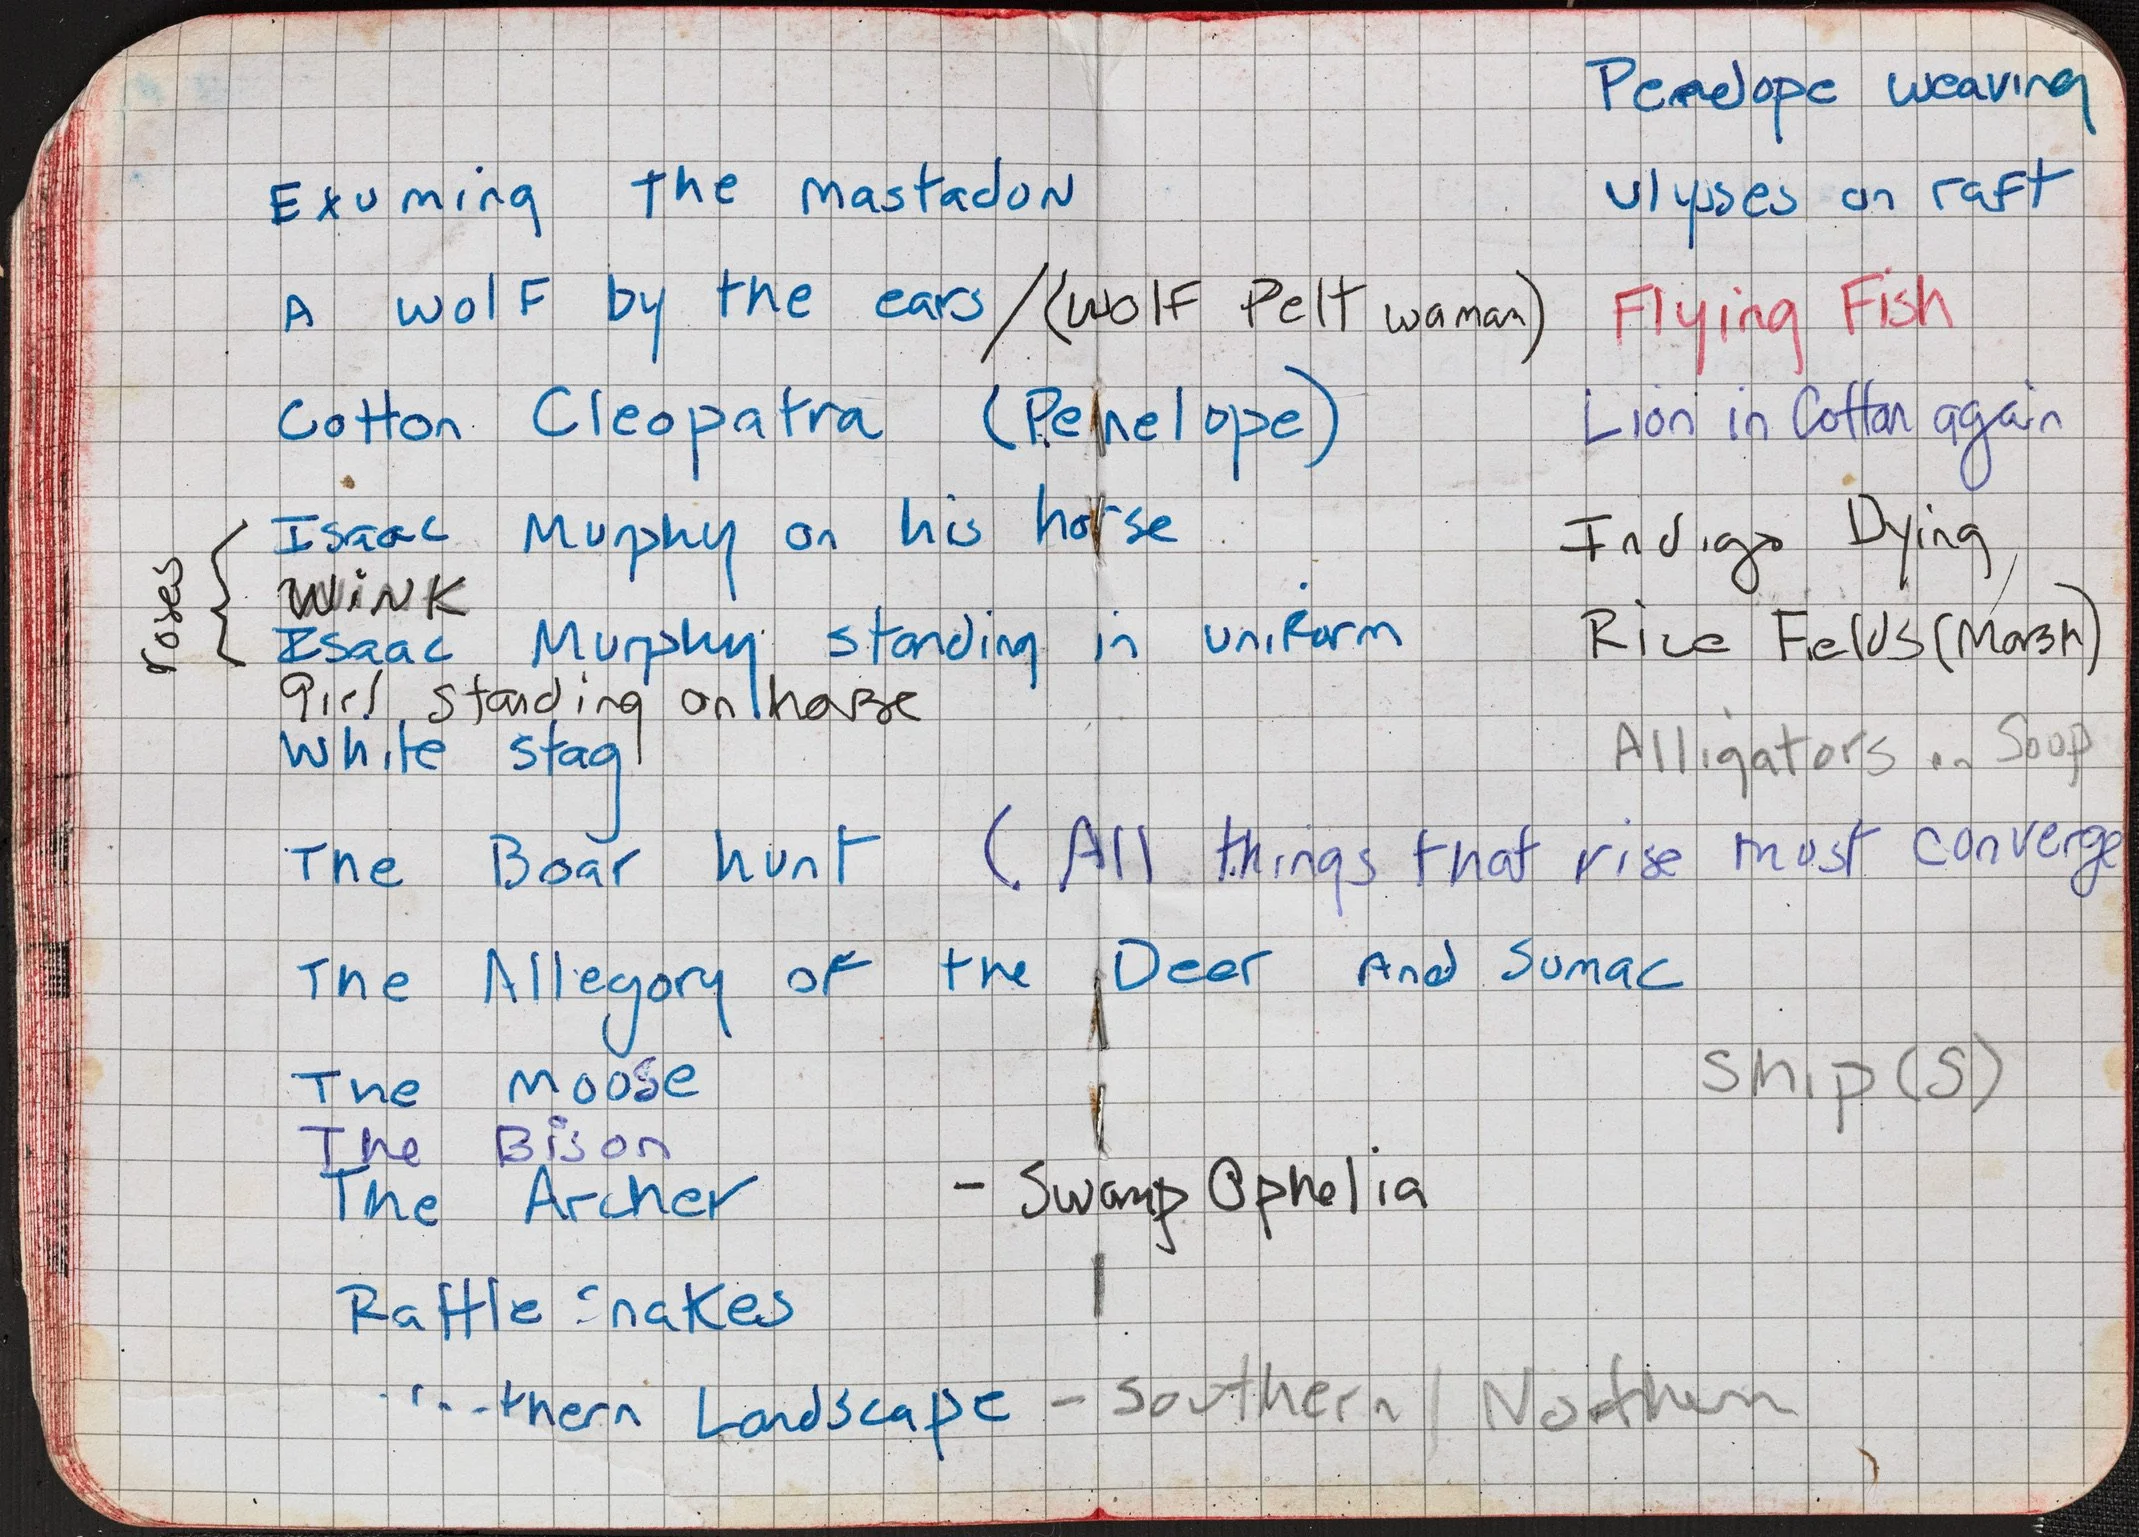 Penelope weaving
Exuming the mastadon
ulysses on raft
A wolF by the ears / (wolF Pelt waman)
Flying Fish
Cotton Cleopatra (Penelope)
Lion in Cotton again
roses
Isaac Murphy on his horse
Indigo Dying
WiNK
Isaac Murphy standing in uniform
Rice Fields (Marsh)
girl standing on horse
white stag
Alligators in Soup
The Boar hunt ( All things that rise must converge
The Allegory of the Deer And Sumac
The moose
Ship(s)
The Bison
The Archer - Swamp Ophelia
Rattle snakes
Landscape - Southern / Northern